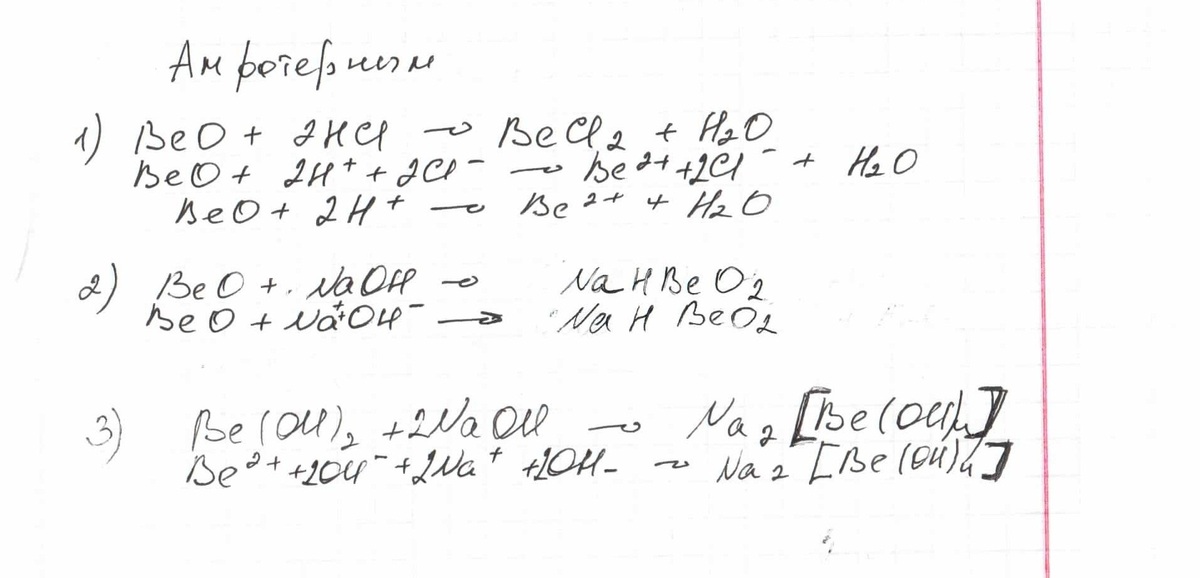 Амфотерным
1) BeO + 2HCl → BeCl₂ + H₂O
BeO + 2H⁺ + 2Cl⁻ → Be²⁺ + 2Cl⁻ + H₂O
BeO + 2H⁺ → Be²⁺ + H₂O
2) BeO + NaOH → NaHBeO₂
BeO + Na⁺ + OH⁻ → NaHBeO₂
3) Be(OH)₂ + 2NaOH → Na₂[Be(OH)₄]
Be²⁺ + 2OH⁻ + 2Na⁺ + 2OH⁻ → Na₂[Be(OH)₄]